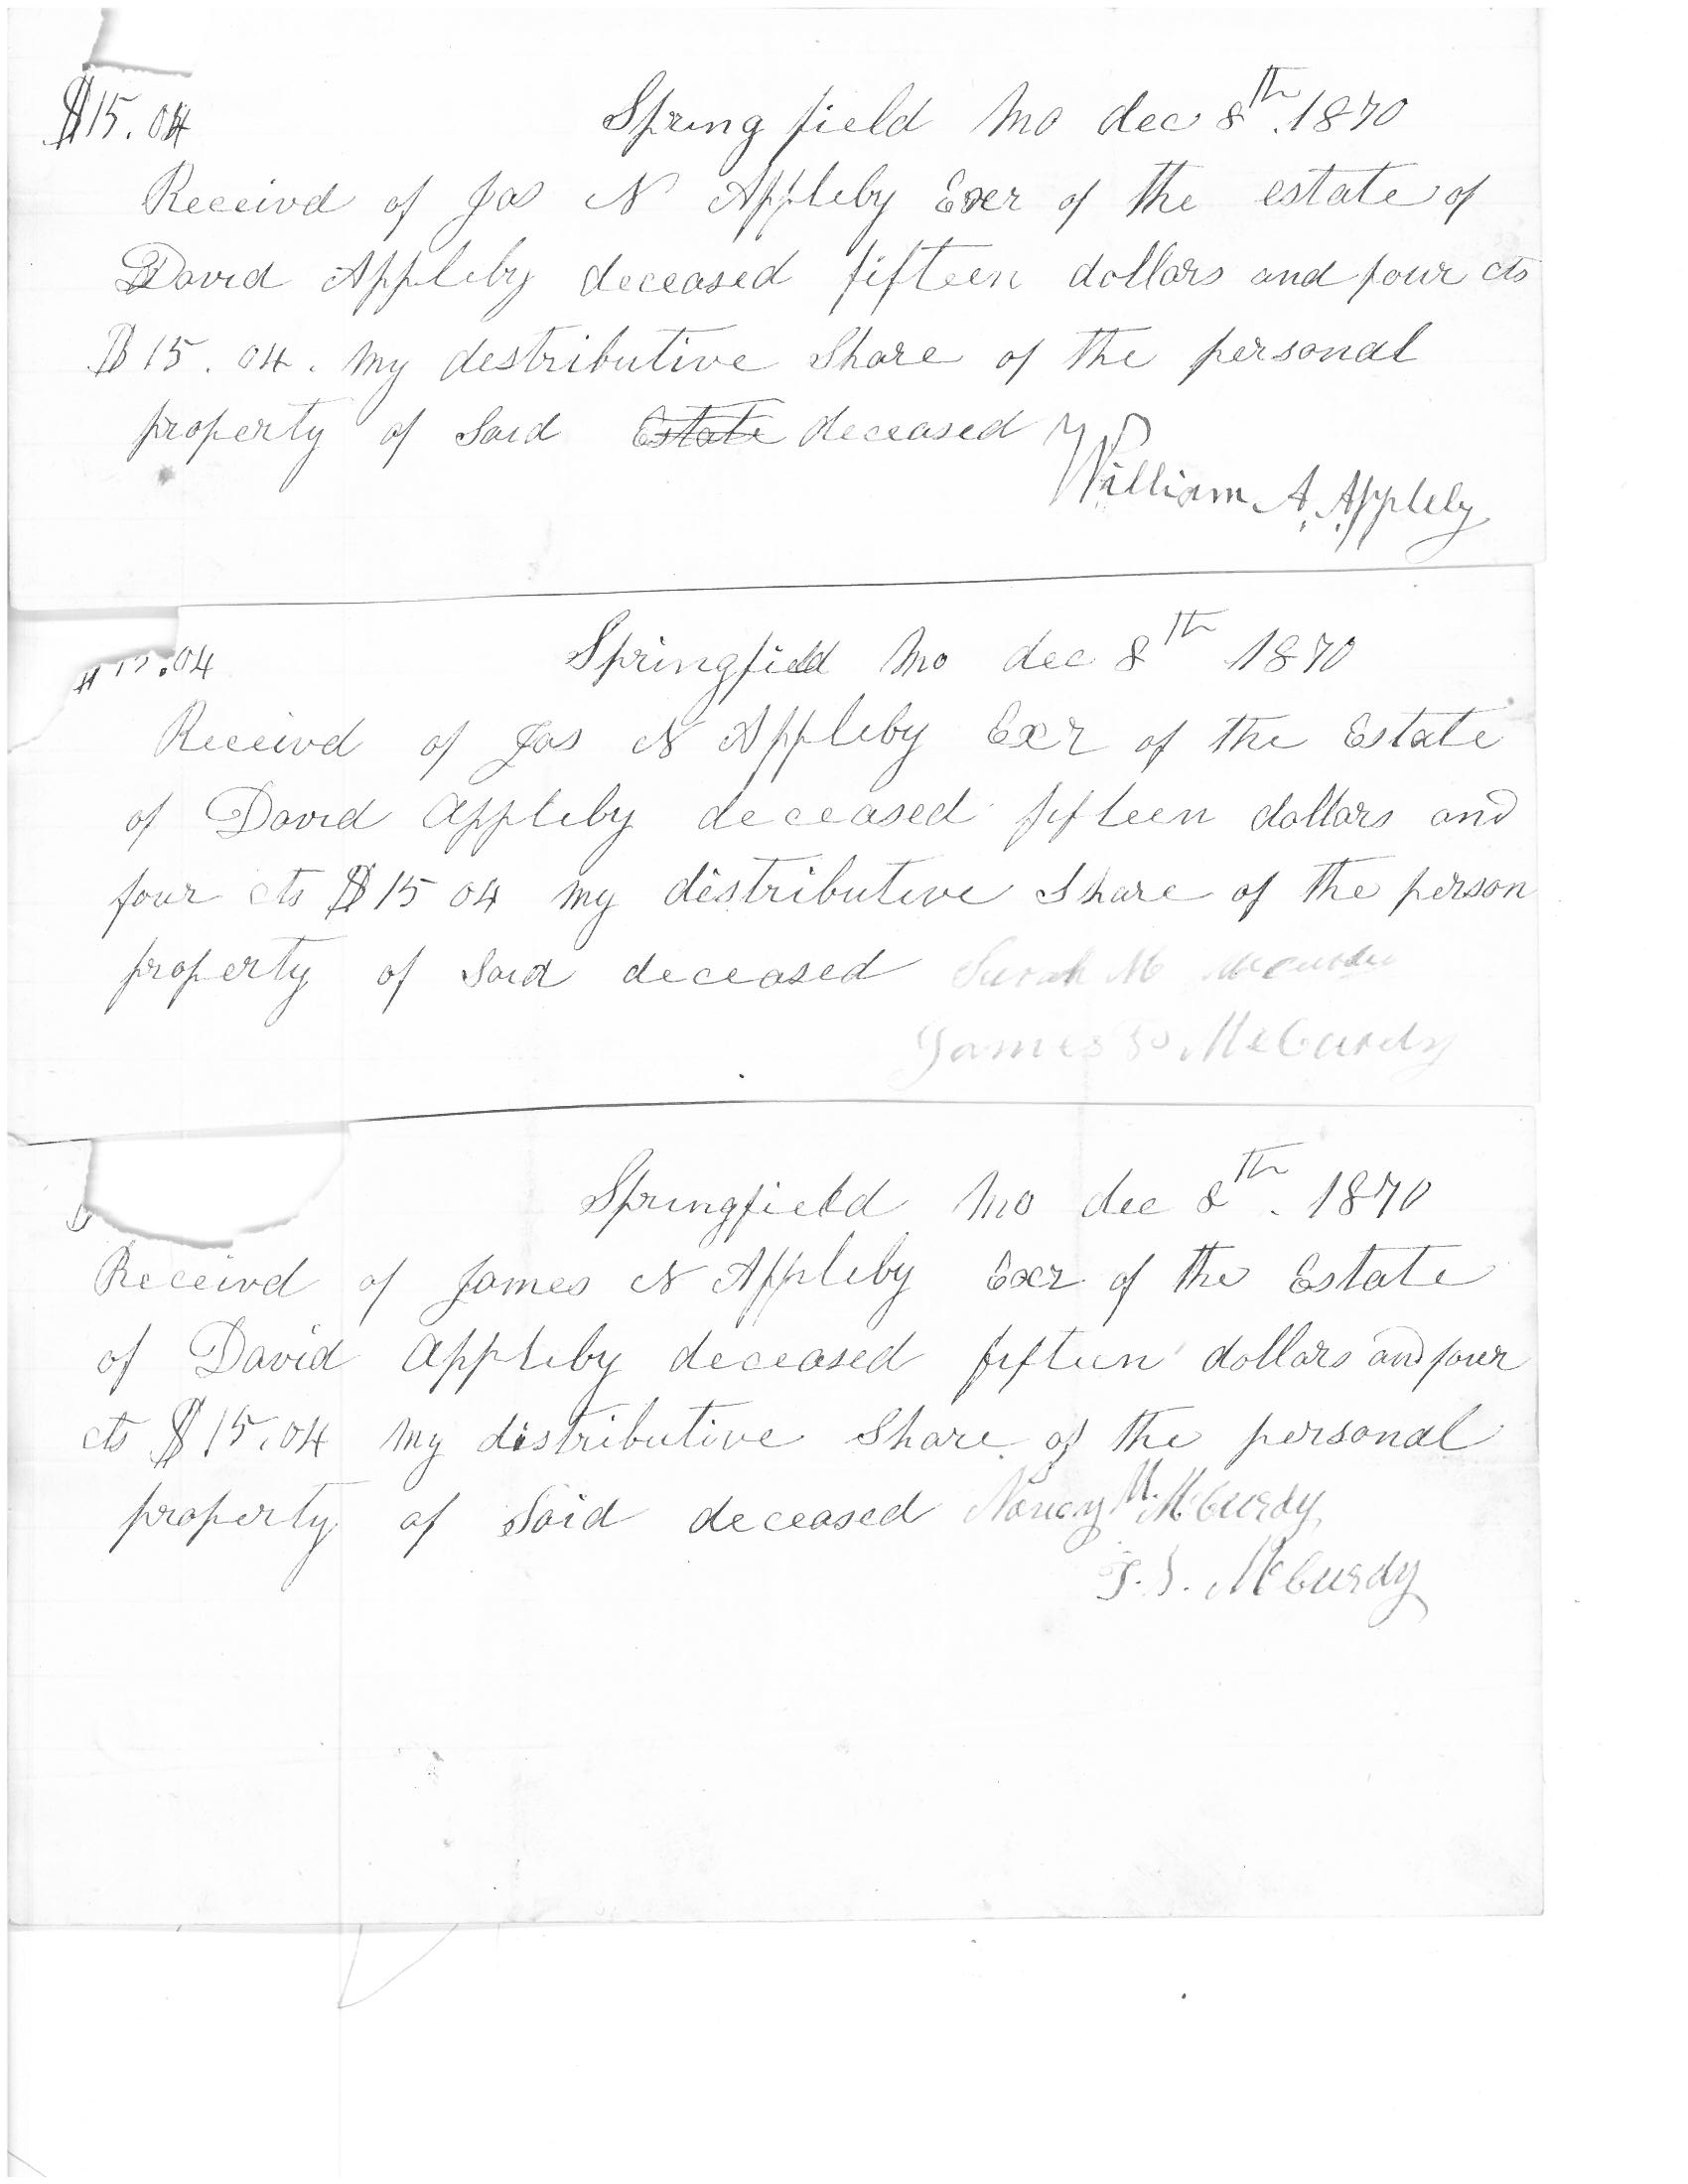 $15.04
Springfield Mo dec 8th 1870
Receivd of Jas N Appleby Exer of the estate of
David Appleby deceased fifteen dollars and four cts
$15.04. my destributive Share of the personal
property of Said Estate deceased
William A. Appleby
.04
Springfield Mo dec 8th 1870
Receivd of Jas N Appleby Exr of the Estate
of David Appleby deceased fifteen dollars and
four cts $15 04 my distributive Share of the person
property of Said deceased Sarah M
James McCurdy
Springfield Mo dec 8th. 1870
Receivd of James N Appleby Exr of the Estate
of David Appleby deceased fifteen dollars and four
cts $15.04 my distributive Share of the personal
property of Said deceased Nancy M. McCurdy
McCurdy